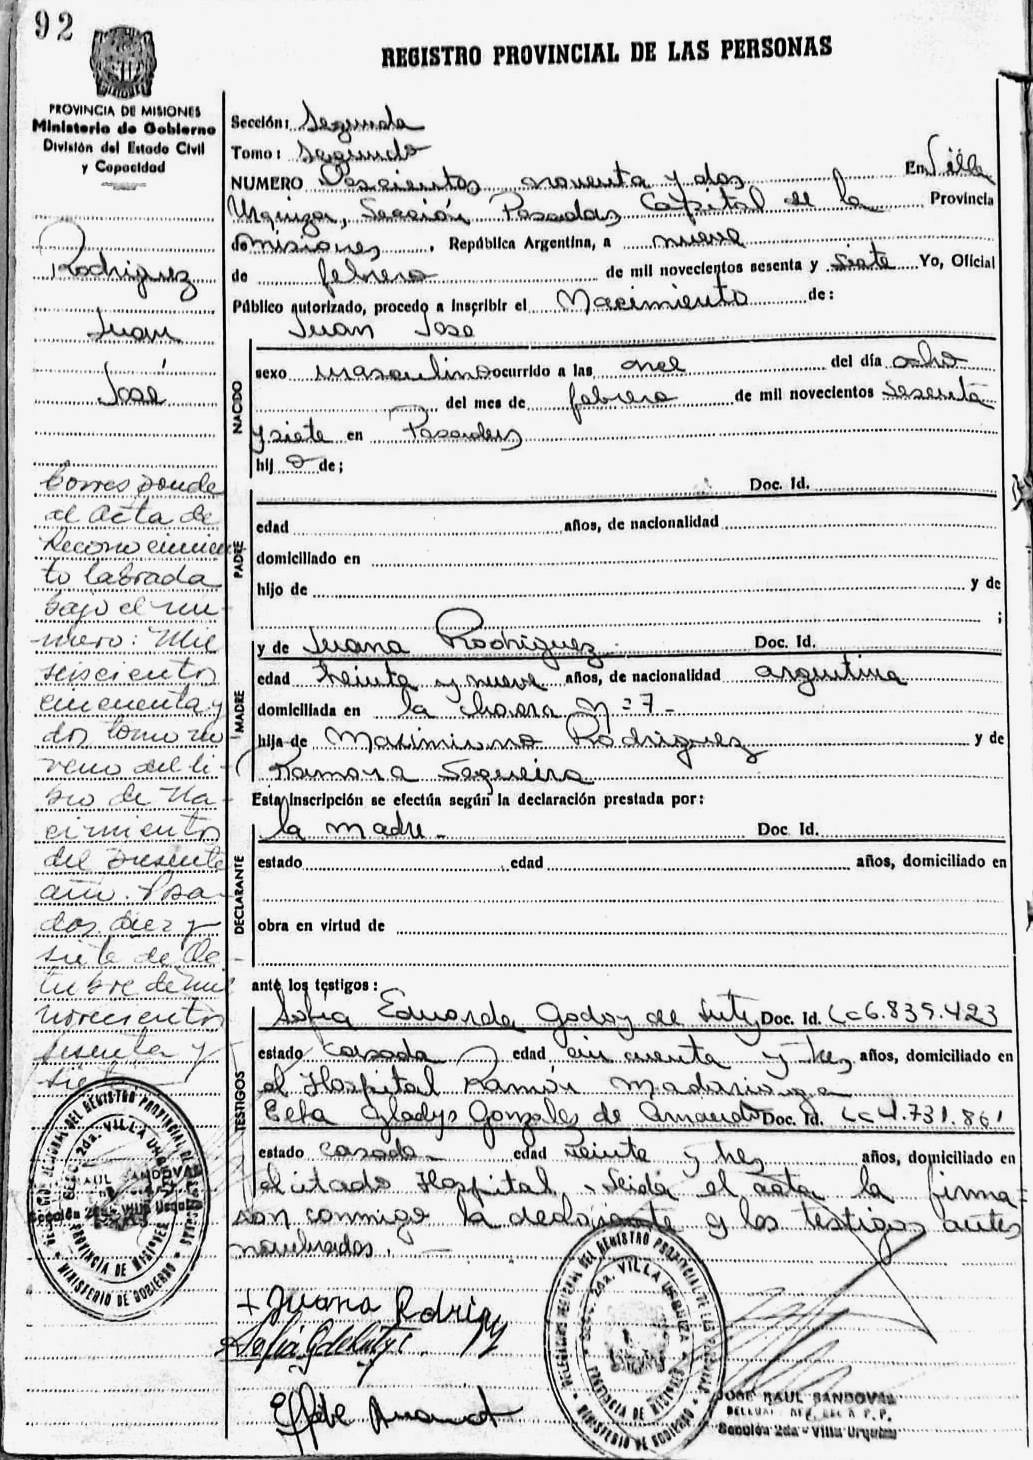 92
REGISTRO PROVINCIAL DE LAS PERSONAS
PROVINCIA DE MISIONES
Ministerio de Gobierno
División del Estado Civil
y Capacidad
Rodriguez
Juan
José
Corresponde
al Acta de
Reconocimien
to labrada
bajo el nu-
mero: Mil
seiscientos
cincuenta y
dos tomo no
veno del li-
bro de Na-
cimientos
del presente
año. Posa-
das diez y
siete de Oc-
tubre de mil
novecientos
sesenta y
siete
Sección: Segunda
Tomo: Segundo
NUMERO Doscientos noventa y dos En Villa
Urquiza, Sección Posadas Capital de la Provincia
de misiones, República Argentina, a nueve
de febrero de mil novecientos sesenta y siete Yo, Oficial
Público autorizado, procedo a inscribir el Nacimiento de:
Juan Jose
NACIDO
sexo masculino ocurrido a las once del día ocho
del mes de febrero de mil novecientos sesenta
y siete en Posadas
hij o de;
PADRE
Doc. Id.
edad años, de nacionalidad
domiciliado en
hijo de y de
;
MADRE
y de Juana Rodriguez Doc. Id.
edad treinta y nueve años, de nacionalidad argentina
domiciliada en la chacra Nº 7-
hija de Maximiano Rodriguez y de
Ramona Segueira
Esta inscripción se efectúa según la declaración prestada por:
DECLARANTE
la madre- Doc Id.
estado edad años, domiciliado en
obra en virtud de
ante los testigos:
TESTIGOS
Sofia Eduarda Godoy de Doc. Id. Lc 6.839.423
estado casada edad cincuenta y tres años, domiciliado en
el Hospital Ramón Madariaga
Gladys Gonzales de Doc. Id. Lc 4.731.861
estado casada- edad veinte y tres años, domiciliado en
el citado Hospital, Leida el acta la firma=
ron conmigo la declarante y los testigos antes
nombrados.
+ Juana Rodrigz
DELEGACION REGIONAL DEL REGISTRO PROVINCIAL DE LAS PERSONAS
SECC. 2da. VILLA URQUIZA
PROVINCIA DE MISIONES
MINISTERIO DE GOBIERNO
DELEGACION REGIONAL DEL REGISTRO PROVINCIAL DE LAS PERSONAS
SECC. 2da. VILLA URQUIZA
PROVINCIA DE MISIONES
MINISTERIO DE GOBIERNO
JOSE RAUL SANDOVAL
Sección 2da - Villa Urquiza